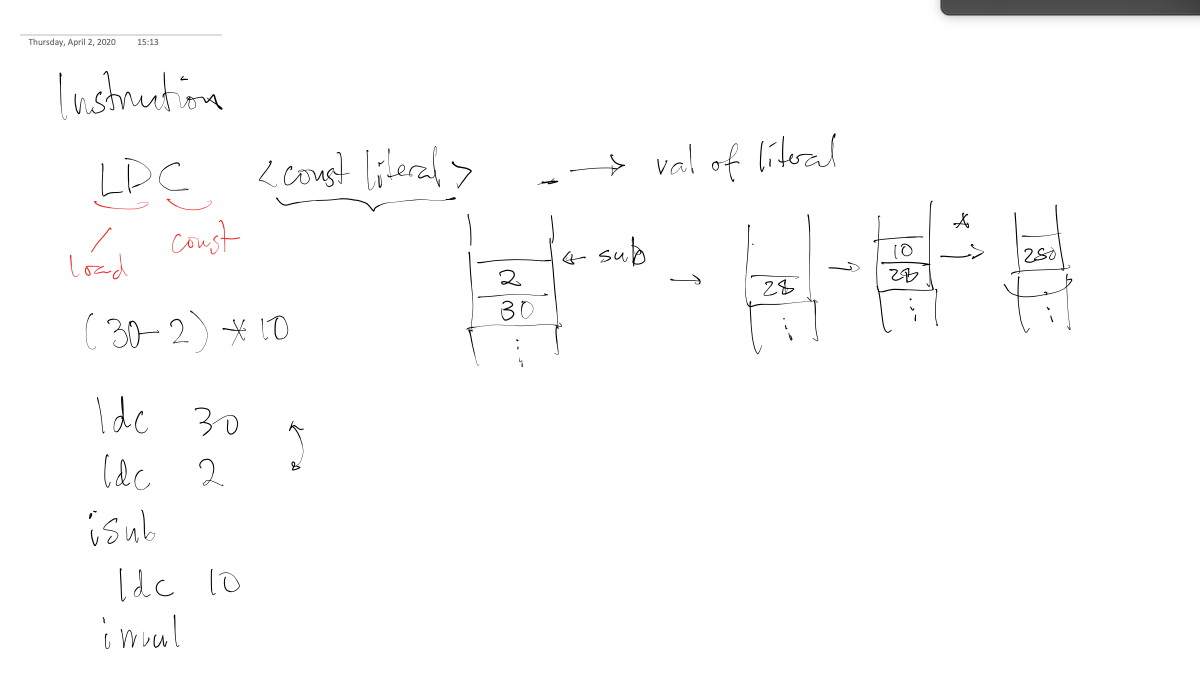 Thursday, April 2, 2020 15:13
Instrution
LDC <const literal> _ → val of literal
load const
← sub → → * →
2
30
28
10
28
280
(30-2) * 10
ldc 30
ldc 2
isub
ldc 10
imul